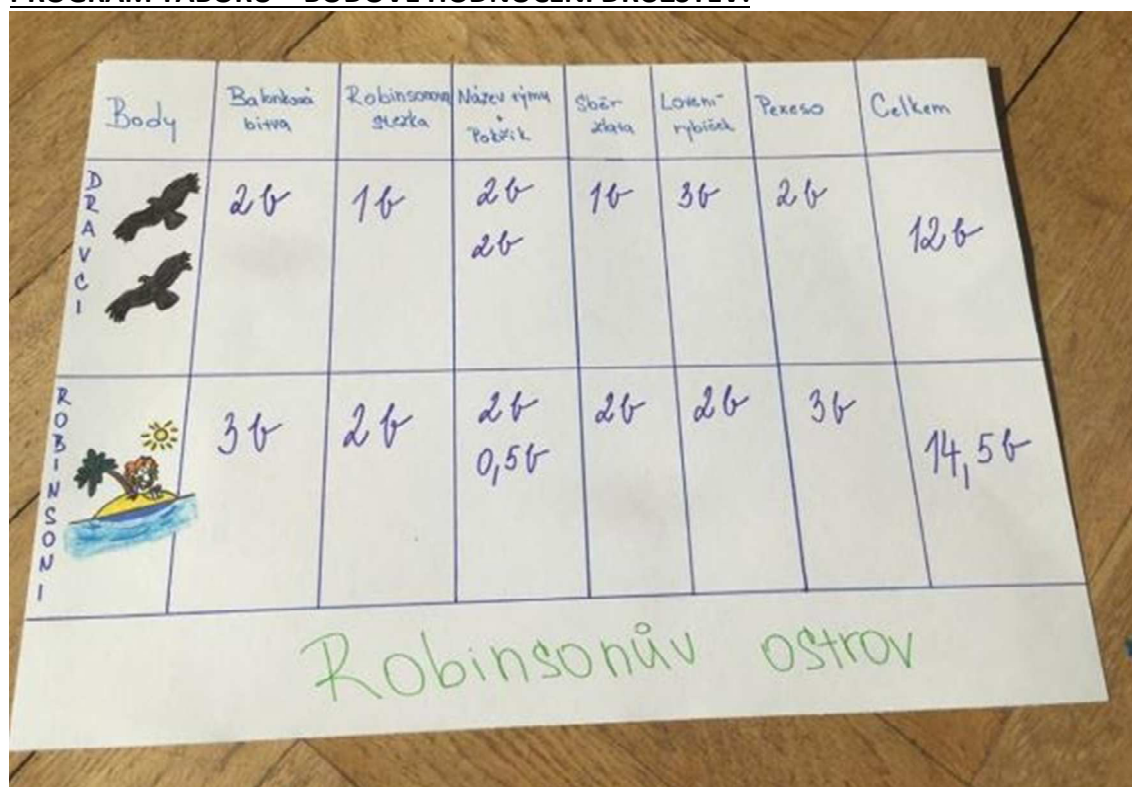 Body
Balonková bitva
Robinsonova stezka
Název týmu + Pokřik
Sběr zlata
Lovení rybiček
Pexeso
Celkem
DRAVCI
2b
1b
2b
2b
1b
3b
2b
12b
ROBINSONI
3b
2b
2b
0,5b
2b
2b
3b
14,5b
Robinsonův ostrov